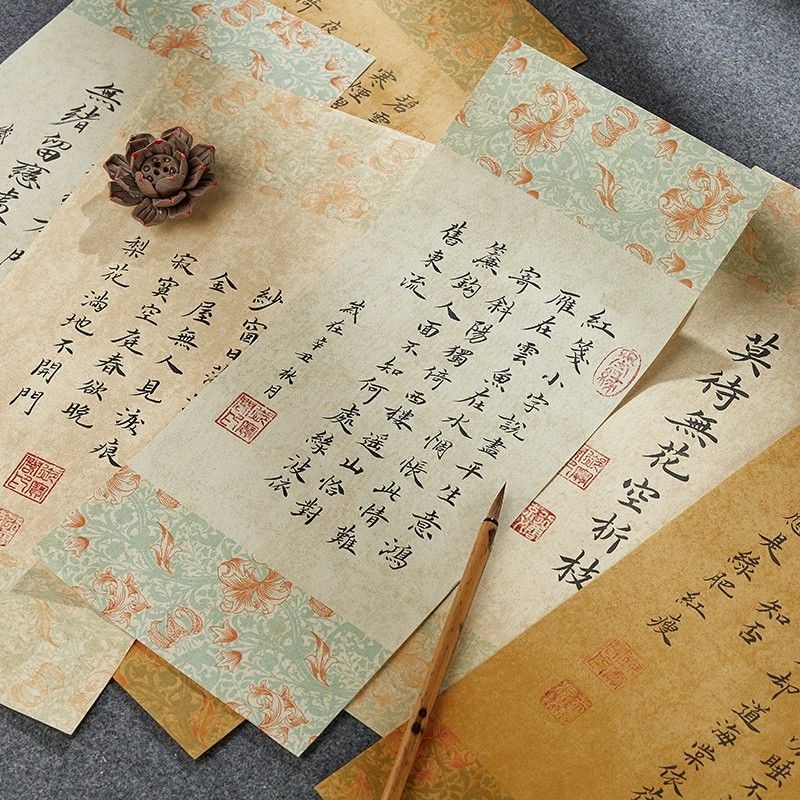 碧雲
寒煙
夜
紅箋小字說盡平生意鴻
雁在雲魚在水惆悵此情難
寄斜陽獨倚西樓遙山恰對
簾鈎人面不知何處綠波依
舊東流
歲在辛丑秋月
紗窗日
金屋無人見淚痕
寂寞空庭春欲晚
梨花滿地不開門
無緒留戀處
莫待無花空折枝
睡不
却道海棠依
知否
應是綠肥紅瘦